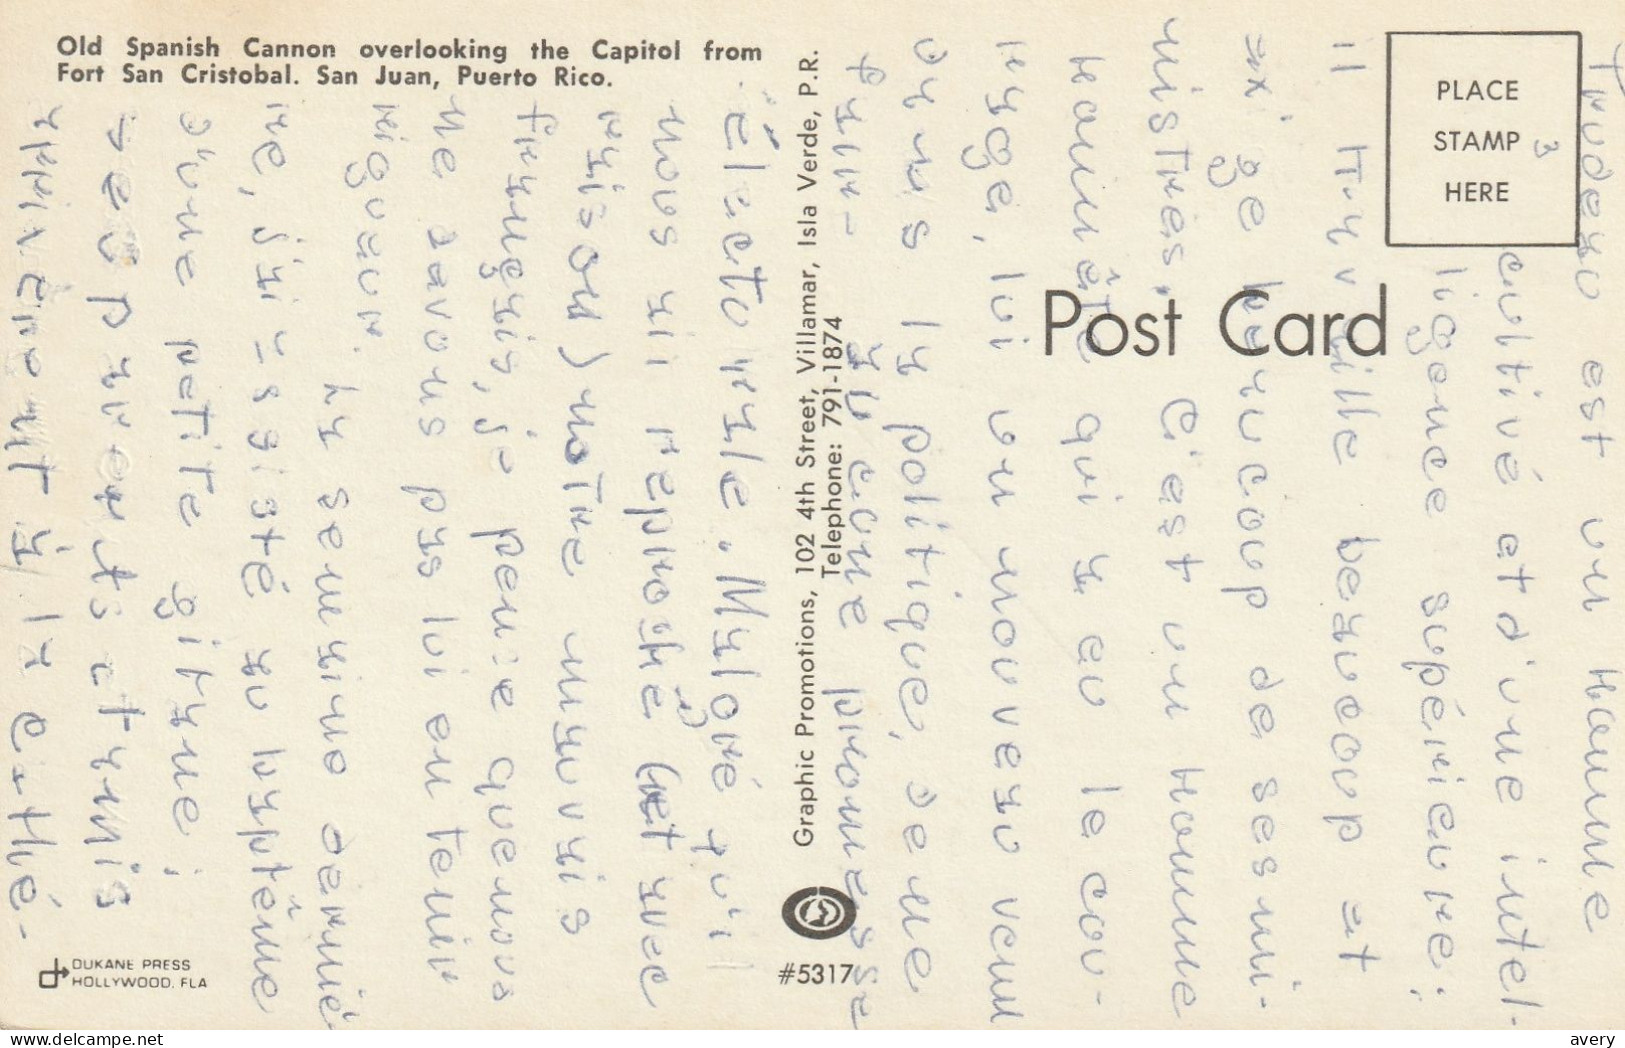 Old Spanish Cannon overlooking the Capitol from
Fort San Cristobal. San Juan, Puerto Rico.
PLACE
STAMP
HERE
3
Post Card
Graphic Promotions, 102 4th Street, Villamar, Isla Verde, P.R.
Telephone: 791-1874
#5317
DUKANE PRESS
HOLLYWOOD, FLA
Trudeau est un homme
cultivé et d'une intel-
ligence supérieure;
il travaille beaucoup et
exige beaucoup de ses mi-
nistres. C'est un homme
honnête qui a eu le cou-
rage, lui un nouveau venu
dans la politique, de ne
faire aucune promesse
électorale. Malgré qu'i
nous ait reproché (et avec
raison) notre mauvais
français, je pense que nous
ne devons pas lui en tenir
rigueur.
La semaine derniè
re, j'ai assisté au baptême
d'une petite gitane;
ses parents et amis
arrivèrent à la cathé-